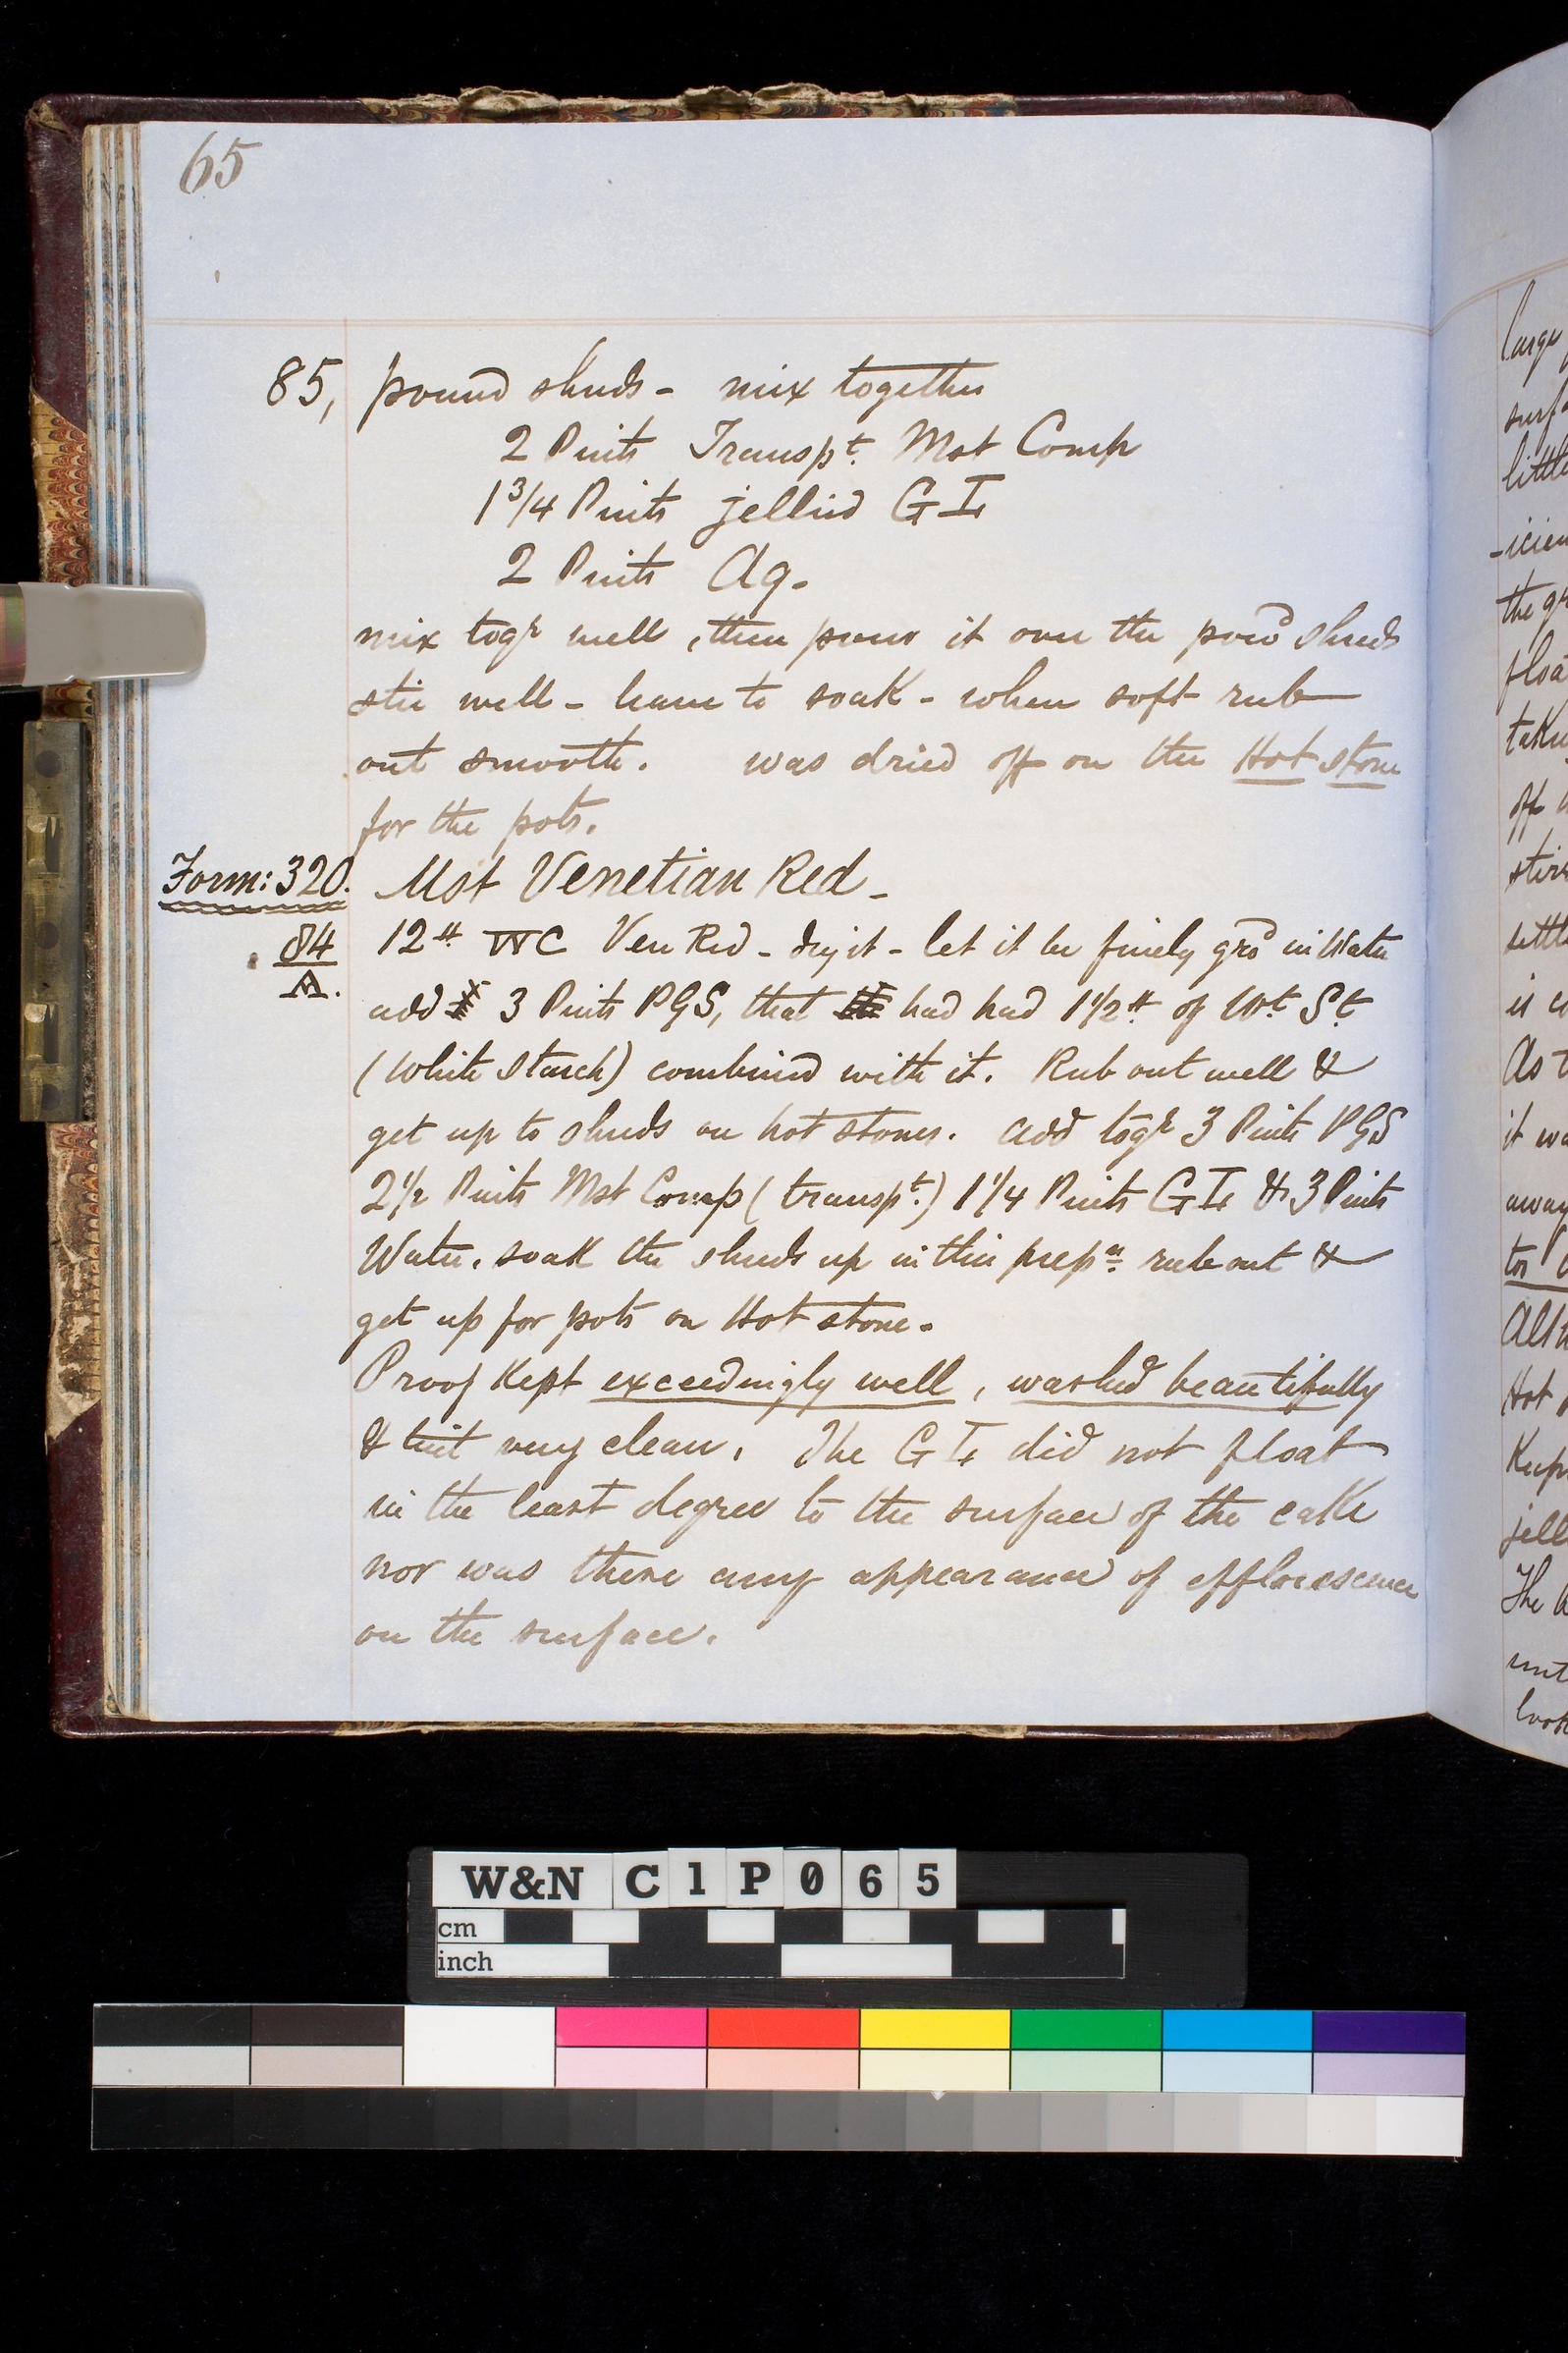 65
85, pound shreds - mix together
2 Pints Transpt. Mst Comp
1 3/4 Pints jellied GI
2 Pints Aq.
mix togr well, then pour it over the powd shreds
stir well - leave to soak - when soft rub
out smooth. was dried off on the Hot stone
for the pots.
Form: 320. Mst Venetian Red -
84 12 lb WC Ven Red - dry it - let it be finely grd in Water
A. add 3 Pints PGS, that had had 1 1/2 lb of Wt. St.
(White Starch) combined with it. Rub out well &
get up to shreds on hot stones. add togr 3 Pints PGS
2 1/2 Pints Mst Comp (transpt.) 1 1/4 Pints GI & 3 Pints
Water. soak the shreds up in this prepn. rub out &
get up for pots on Hot stone.
Proof Kept exceedingly well, washed beautifully
& tint very clean. The GI did not float
in the least degree to the surface of the cake
nor was there any appearance of efflorescence
on the surface.
large
surfa
little
-icien
the gr
float
off
stirr
settl
As
it wa
away
Hot
Keep
jell
The
unt
look
W&N C1P065
cm
inch